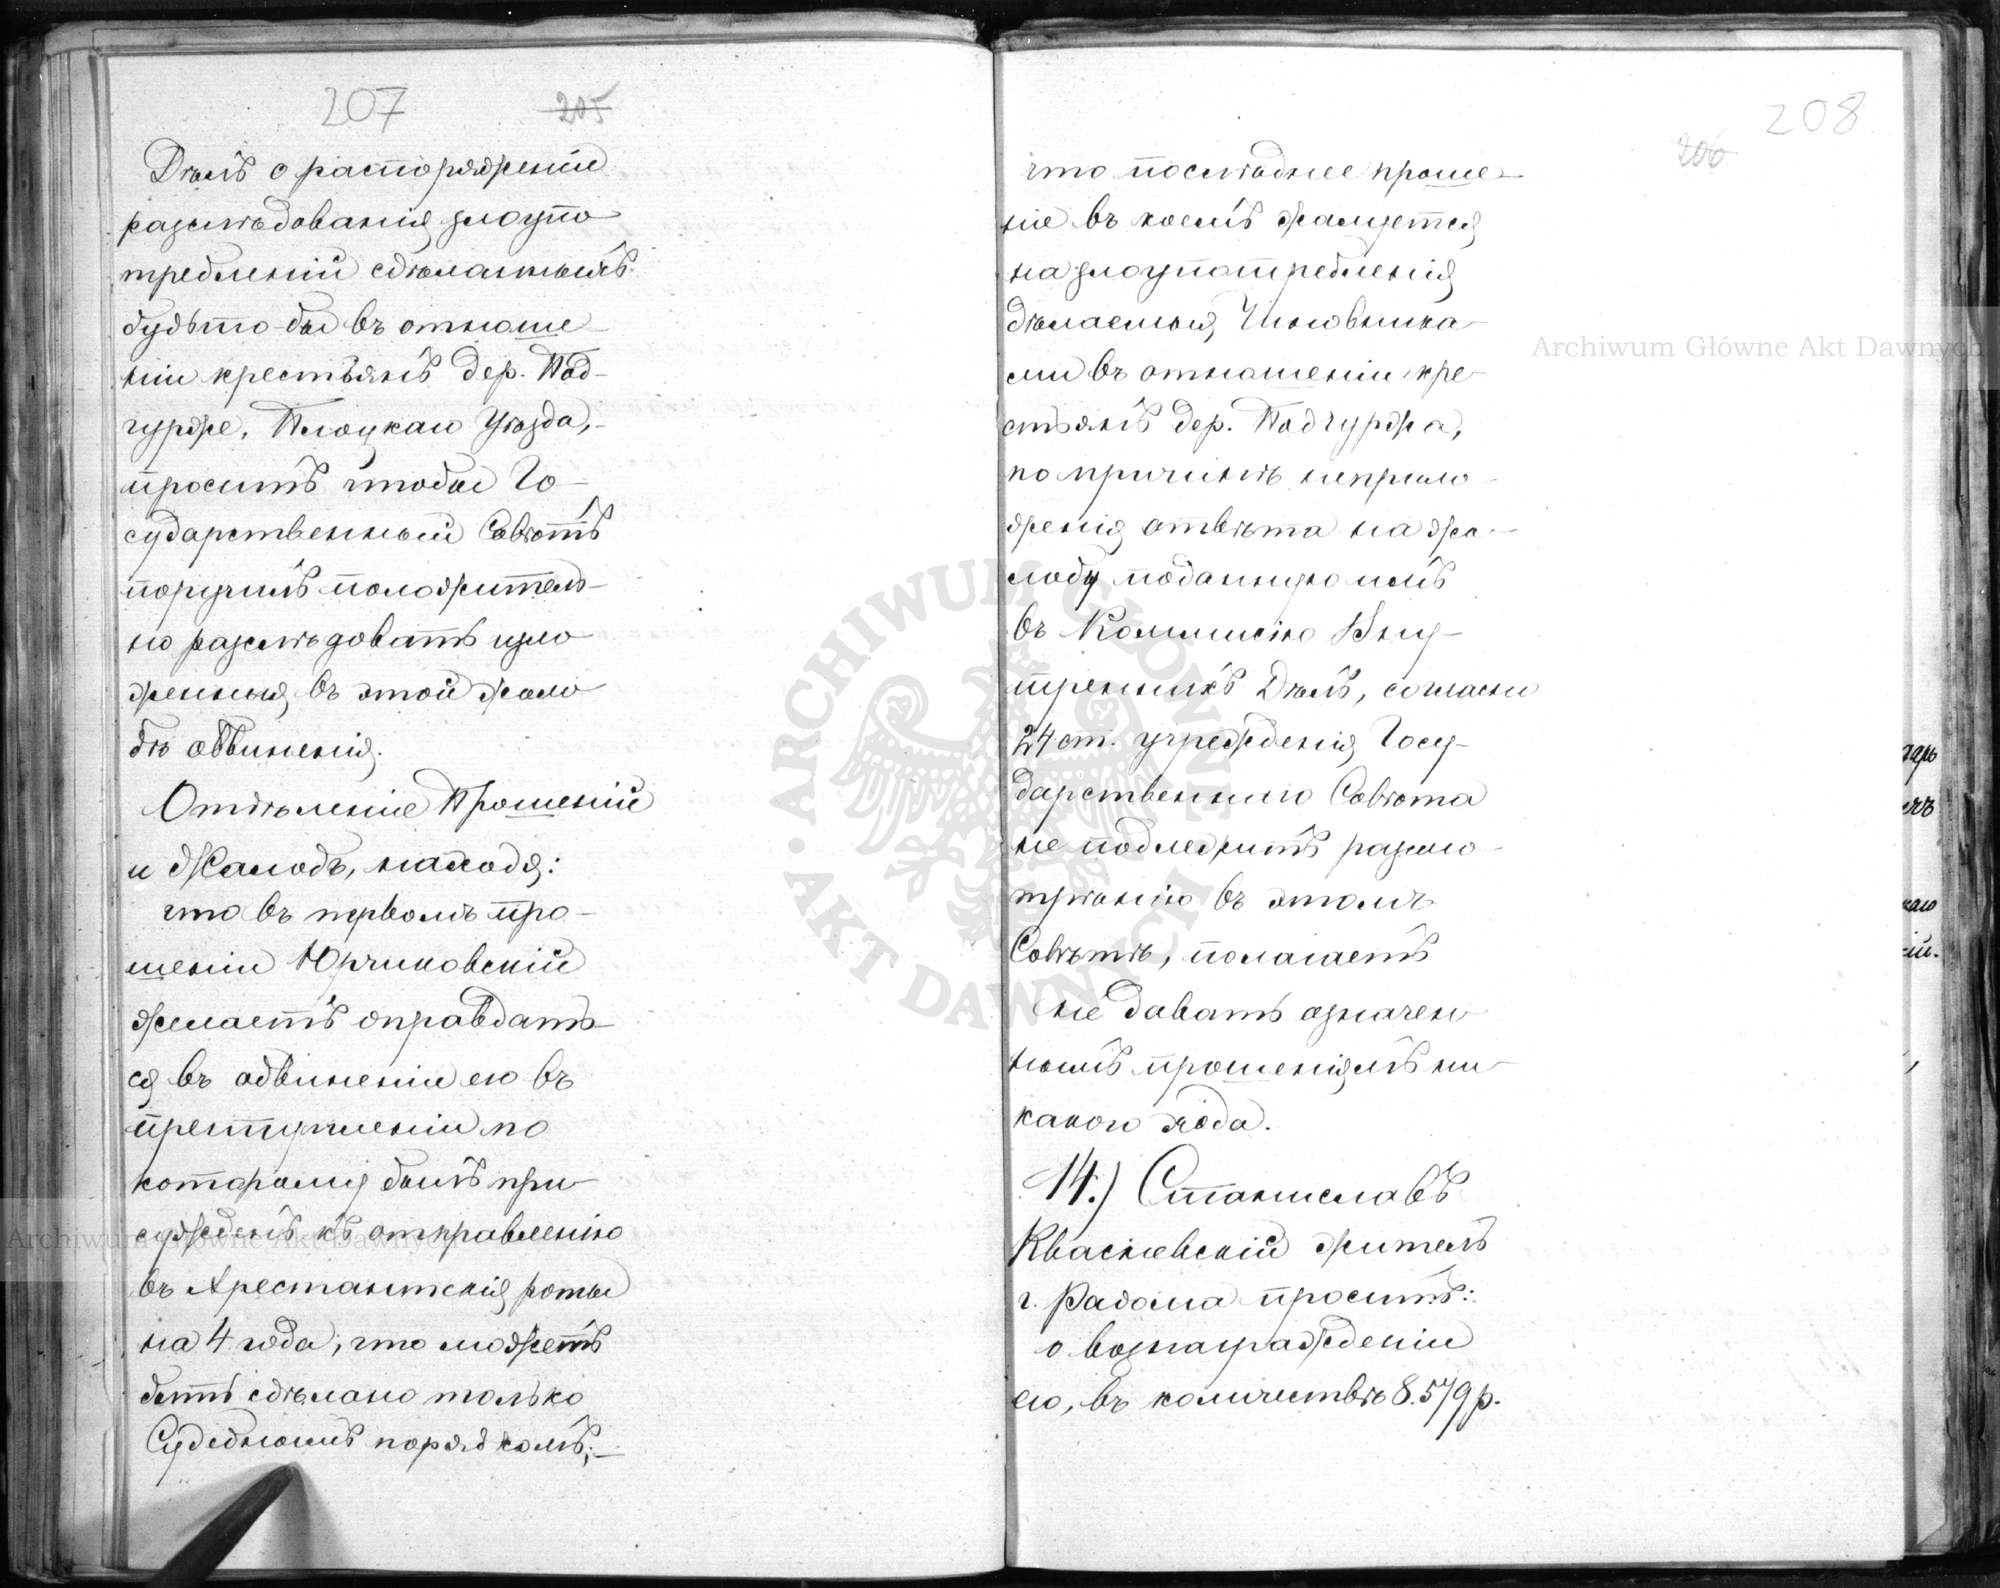 207 205
Дѣлъ о распоряженіи
разслѣдованія злоупо
требленій сдѣланныхъ
будьто-бы въ отноше-
ніи крестьянъ дер. Под-
гурже, Плоцкаго Уѣзда,-
проситъ чтобы Го-
сударственный Совѣтъ
поручилъ положитель-
но разслѣдовать изло-
женныя въ этой жало
бѣ обвиненія.
Отдѣленіе Прошеній
и Жалобъ, находя:
что въ первомъ про-
шеніи Юрчиковскій
желаетъ оправдать-
ся въ обвиненіи его въ
преступленіи по
которому былъ при-
сужденъ къ отправленію
въ Арестантскія роты
на 4 года, что можетъ
быть сдѣлано только
Судебнымъ порядкомъ;-
208
206
что послѣднее проше-
ніе въ коемъ жалуется
на злоупотребленія
дѣлаемыя Чиновника-
ми въ отношеніи кре-
стьянъ дер. Подгуржа,
по причинѣ неприло-
женія отвѣта на жа-
лобу поданную имъ
въ Коммисію Вну-
треннихъ Дѣлъ, согласно
24 ст. учрежденія Госу-
дарственнаго Совѣта
не подлежитъ разсмо-
трѣнію въ этомъ
Совѣтѣ, полагаетъ
не давать означен-
нымъ прошеніямъ ни-
какого хода.
14.) Станиславъ
Кваснѣвскій житель
г. Радома проситъ:
о вознагражденіи
его, въ количествѣ 8.579 р.
Archiwum Główne Akt Dawnych
Archiwum Główne Akt Dawnych
ARCHIWUM GŁÓWNE
AKT DAWNYCH